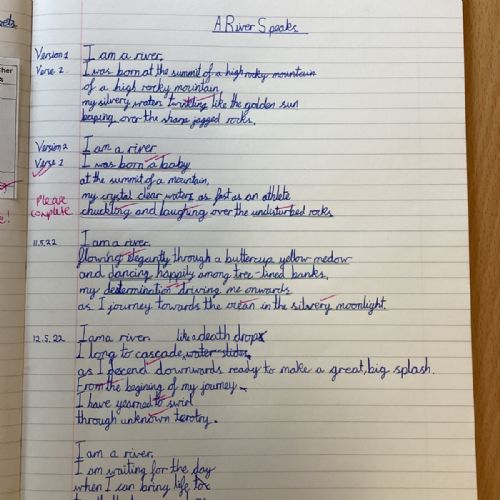 A River Speaks
Version 1 I am a river.
Verse 2. I was born at the summit of a high rocky mountain
of a high rocky mountain,
my silvery waters twinkling like the golden sun
leaping over the sharp jagged rocks.
Version 2 I am a river
Verse 2 I was born a baby
at the summit of a mountain,
my crystal clear waters as fast as an athlete
Please complete
chuckling and laughing over the undisturbed rocks
11.5.22 I am a river.
flowing elegantly through a buttercup yellow medow
and dancing happily among tree-lined banks,
my determination driving me onwards
as I journey towards the ocean in the silvery moonlight.
12.5.22 I am a river. like a death drop
I long to cascade, water slides,
as I decend downwards ready to make a great, big splash.
From the begining of my journey
I have yearned to swirl
through unknown terotry.
I am a river.
I am waiting for the day
when I can bring life to